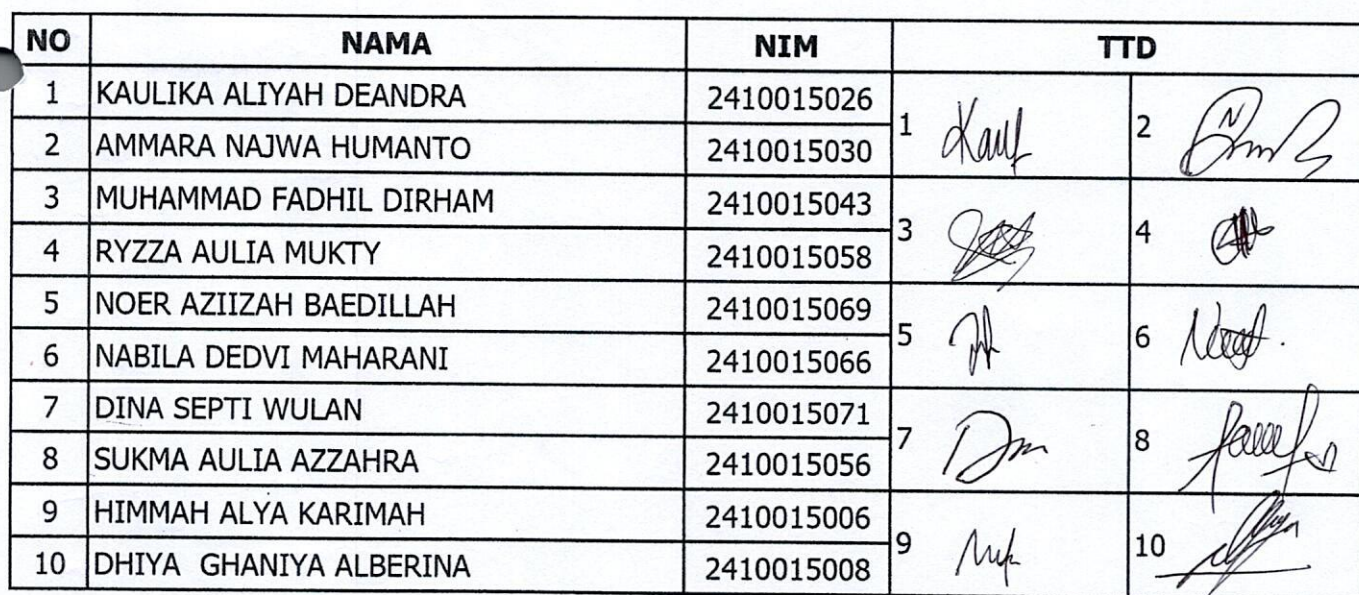 NO NAMA NIM TTD
1 KAULIKA ALIYAH DEANDRA 2410015026
1 Kaulf 2
2 AMMARA NAJWA HUMANTO 2410015030
3 MUHAMMAD FADHIL DIRHAM 2410015043
3 4
4 RYZZA AULIA MUKTY 2410015058
5 NOER AZIIZAH BAEDILLAH 2410015069
5 6
6 NABILA DEDVI MAHARANI 2410015066
7 DINA SEPTI WULAN 2410015071
7 8
8 SUKMA AULIA AZZAHRA 2410015056
9 HIMMAH ALYA KARIMAH 2410015006
9 10
10 DHIYA GHANIYA ALBERINA 2410015008